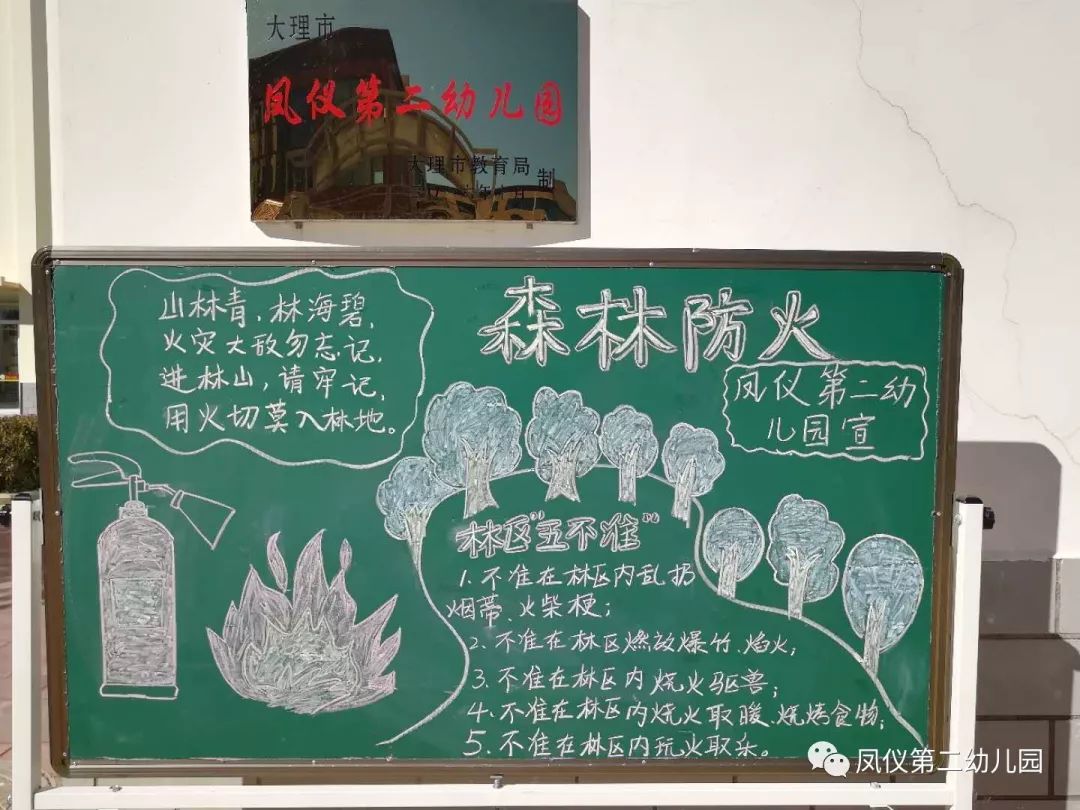 大理市
凤仪第二幼儿园
大理市教育局
制
山林青，林海碧，
火灾大敌勿忘记，
进林山，请牢记，
用火切莫入林地。
森林防火
凤仪第二幼
儿园宣
林区“五不准”
1. 不准在林区内乱扔
烟蒂、火柴梗；
2. 不准在林区燃放爆竹、焰火；
3. 不准在林区内烧火驱兽；
4. 不准在林区内烧火取暖、烧烤食物；
5. 不准在林区内玩火取乐。
凤仪第二幼儿园